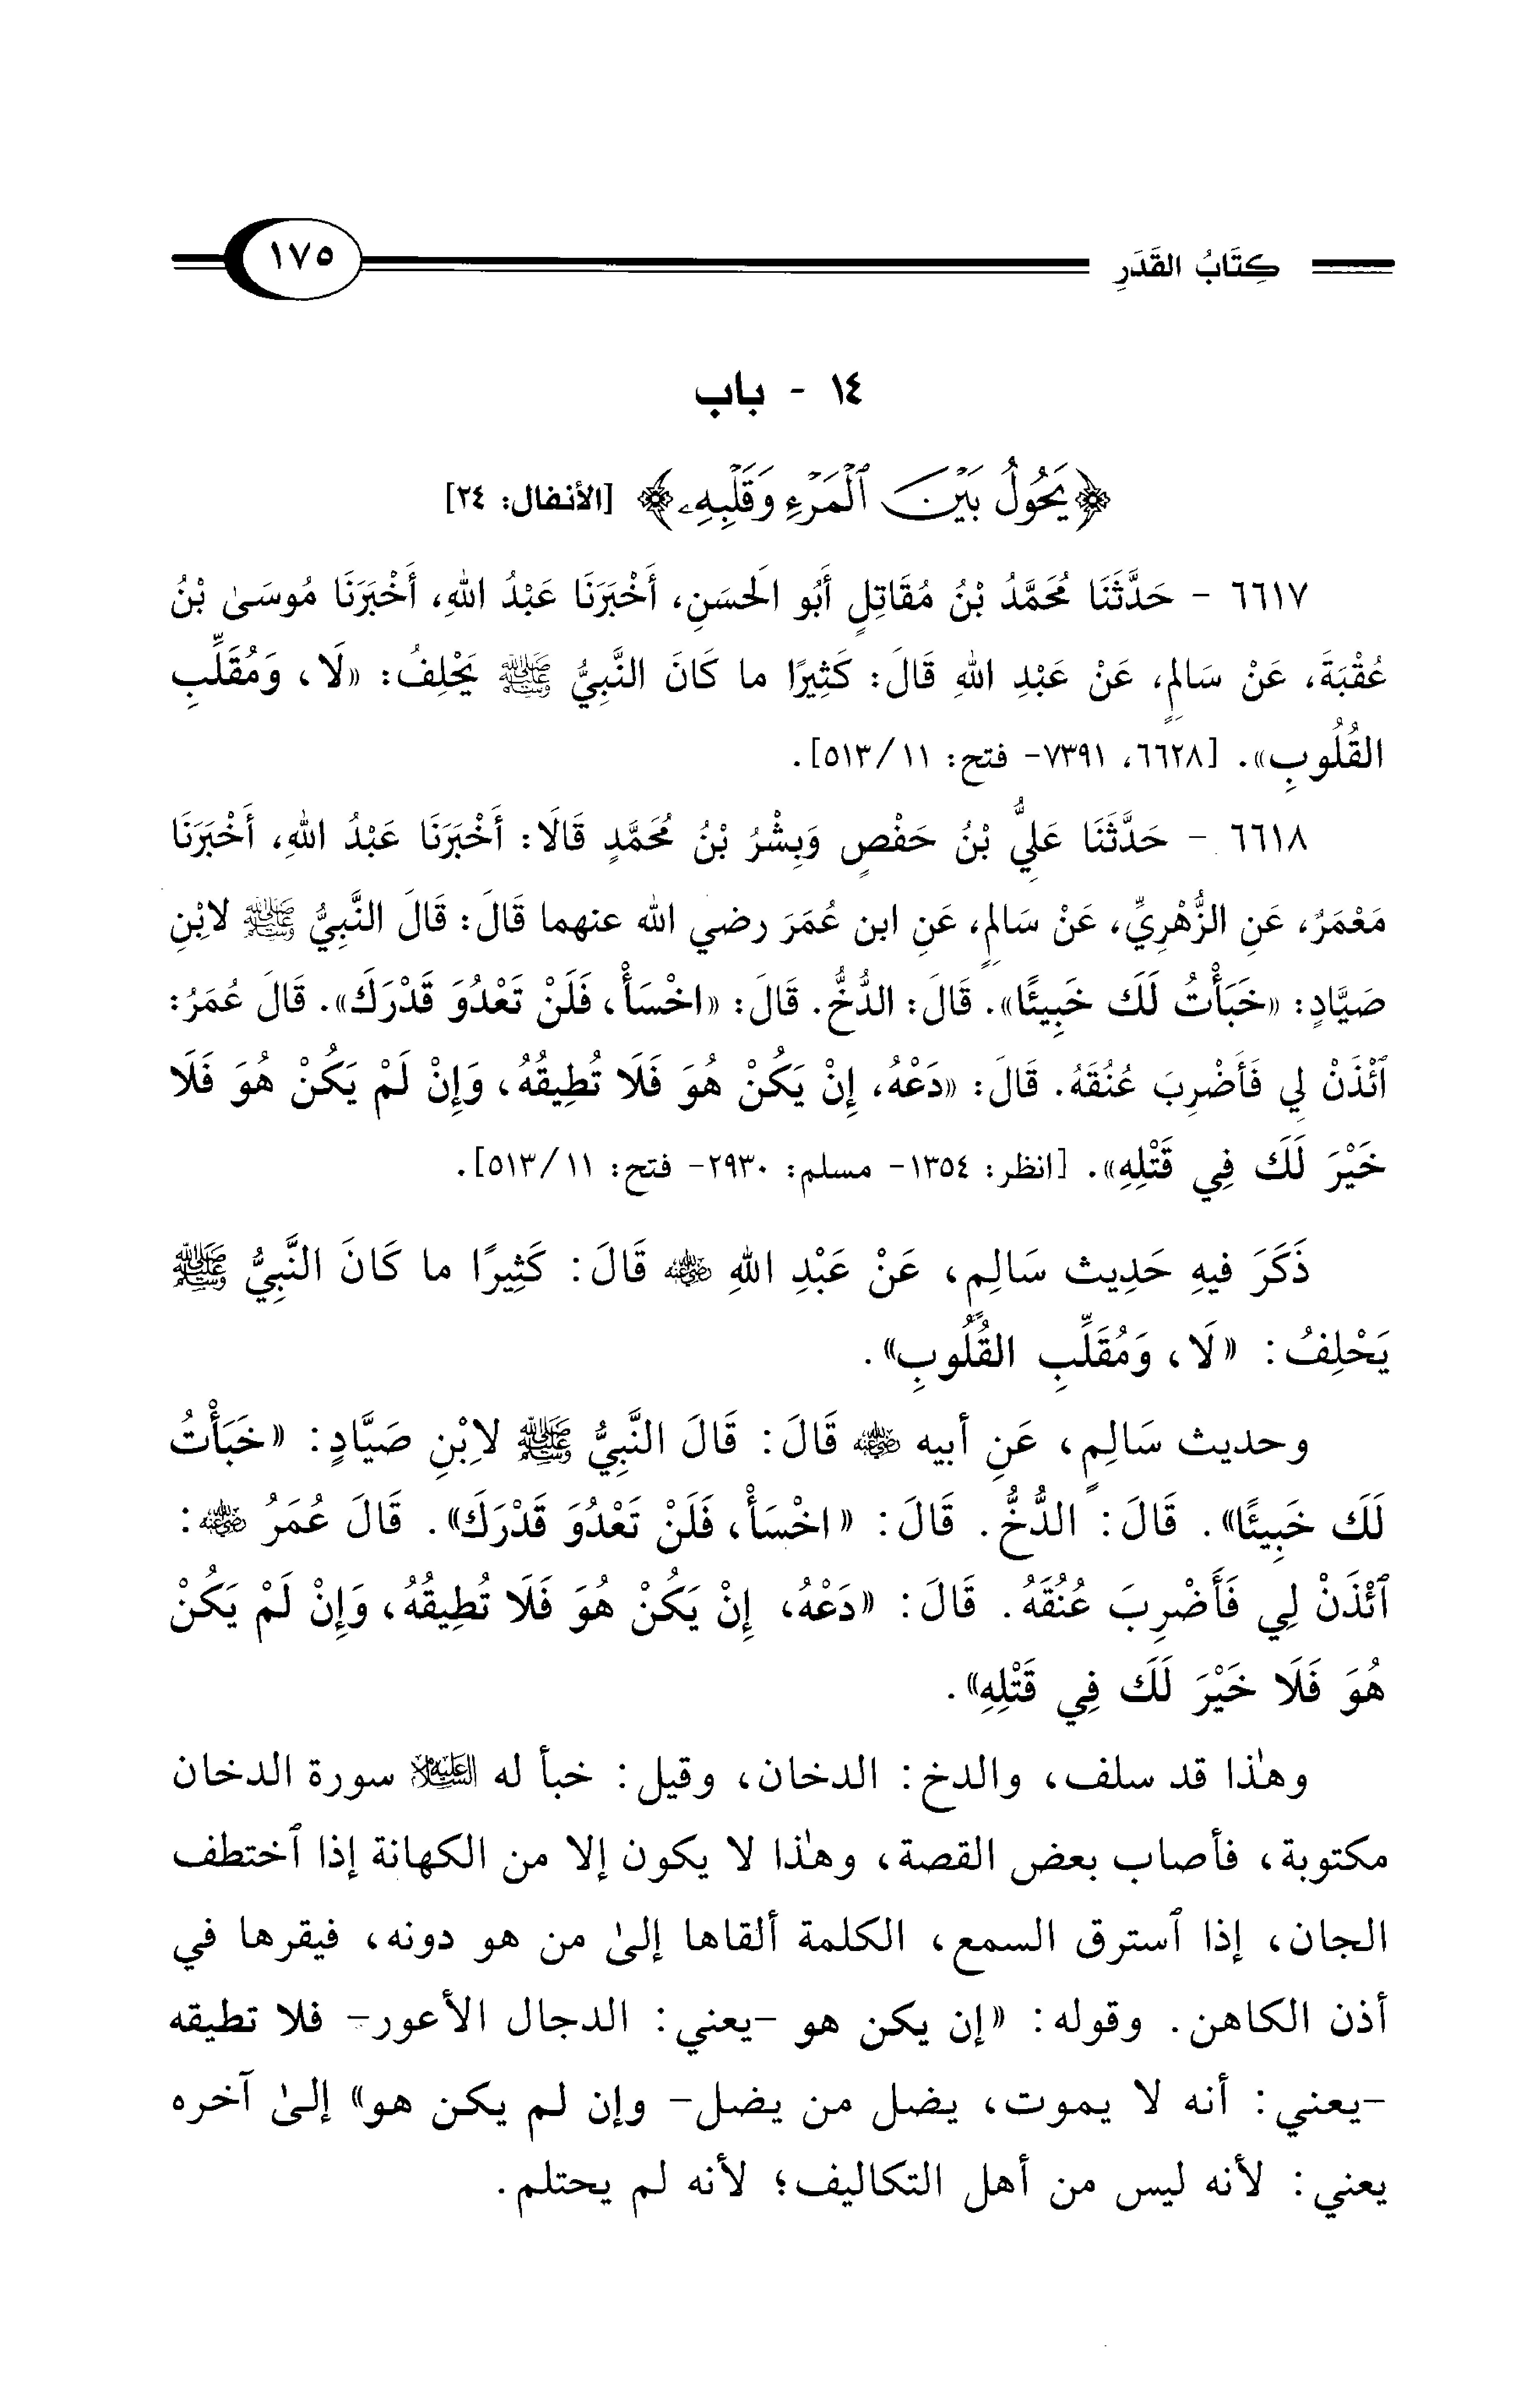 كِتَابُ القَدَرِ ١٧٥
١٤ - باب
﴿يَحُولُ بَيْنَ ٱلْمَرْءِ وَقَلْبِهِۦ﴾ [الأنفال: ٢٤]
٦٦١٧ - حَدَّثَنَا مُحَمَّدُ بْنُ مُقَاتِلٍ أَبُو الَحسَنِ، أَخْبَرَنَا عَبْدُ اللهِ، أَخْبَرَنَا مُوسَىٰ بْنُ
عُقْبَةَ، عَنْ سَالمٍ، عَنْ عَبْدِ اللهِ قَالَ: كَثِيرًا ما كَانَ النَّبِيُّ ﷺ يَحْلِفُ: «لَا، وَمُقَلِّبِ
القُلُوبِ». [٦٦٢٨، ٧٣٩١- فتح: ١١/ ٥١٣].
٦٦١٨ - حَدَّثَنَا عَلِيُّ بْنُ حَفْصٍ وَبِشْرُ بْنُ مُحَمَّدٍ قَالَا: أَخْبَرَنَا عَبْدُ اللهِ، أَخْبَرَنَا
مَعْمَرٌ، عَنِ الزُّهْرِيِّ، عَنْ سَالمٍ، عَنِ ابن عُمَرَ رضي الله عنهما قَالَ: قَالَ النَّبِيُّ ﷺ لابْنِ
صَيَّادٍ: «خَبَأْتُ لَكَ خَبِيئًا». قَالَ: الدُّخُّ. قَالَ: «اخْسَأْ، فَلَنْ تَعْدُوَ قَدْرَكَ». قَالَ عُمَرُ:
ٱئْذَنْ لِي فَأَضْرِبَ عُنُقَهُ. قَالَ: «دَعْهُ، إِنْ يَكُنْ هُوَ فَلَا تُطِيقُهُ، وَإِنْ لَمْ يَكُنْ هُوَ فَلَا
خَيْرَ لَكَ فِي قَتْلِهِ». [انظر: ١٣٥٤- مسلم: ٢٩٣٠- فتح: ١١/ ٥١٣].
ذَكَرَ فيهِ حَدِيث سَالِمٍ، عَنْ عَبْدِ اللهِ ﵁ قَالَ: كَثِيرًا ما كَانَ النَّبِيُّ ﷺ
يَحْلِفُ: «لَا، وَمُقَلِّبِ القُلُوبِ».
وحديث سَالِمٍ، عَنِ أبيه ﵁ قَالَ: قَالَ النَّبِيُّ ﷺ لاِبْنِ صَيَّادٍ: «خَبَأْتُ
لَكَ خَبِيئًا». قَالَ: الدُّخُّ. قَالَ: «اخْسَأْ، فَلَنْ تَعْدُوَ قَدْرَكَ». قَالَ عُمَرُ ﵁:
ٱئْذَنْ لِي فَأَضْرِبَ عُنُقَهُ. قَالَ: «دَعْهُ، إِنْ يَكُنْ هُوَ فَلَا تُطِيقُهُ، وَإِنْ لَمْ يَكُنْ
هُوَ فَلَا خَيْرَ لَكَ فِي قَتْلِهِ».
وهٰذا قد سلف، والدخ: الدخان، وقيل: خبأ له ﵇ سورة الدخان
مكتوبة، فأصاب بعض القصة، وهٰذا لا يكون إلا من الكهانة إذا ٱختطف
الجان، إذا ٱسترق السمع، الكلمة ألقاها إلىٰ من هو دونه، فيقرها في
أذن الكاهن. وقوله: «إن يكن هو -يعني: الدجال الأعور- فلا تطيقه
-يعني: أنه لا يموت، يضل من يضل- وإن لم يكن هو» إلىٰ آخره
يعني: لأنه ليس من أهل التكاليف؛ لأنه لم يحتلم.